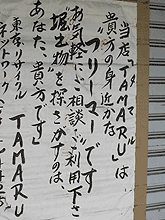 当店『TAMARU』は、
タマル
"貴方の身近かな"
フリーマーです
お気軽にご相談ご利用下さい
"堀出物"を探さがすのは、
あなた、貴方です
東京リサイクル
TAMARU